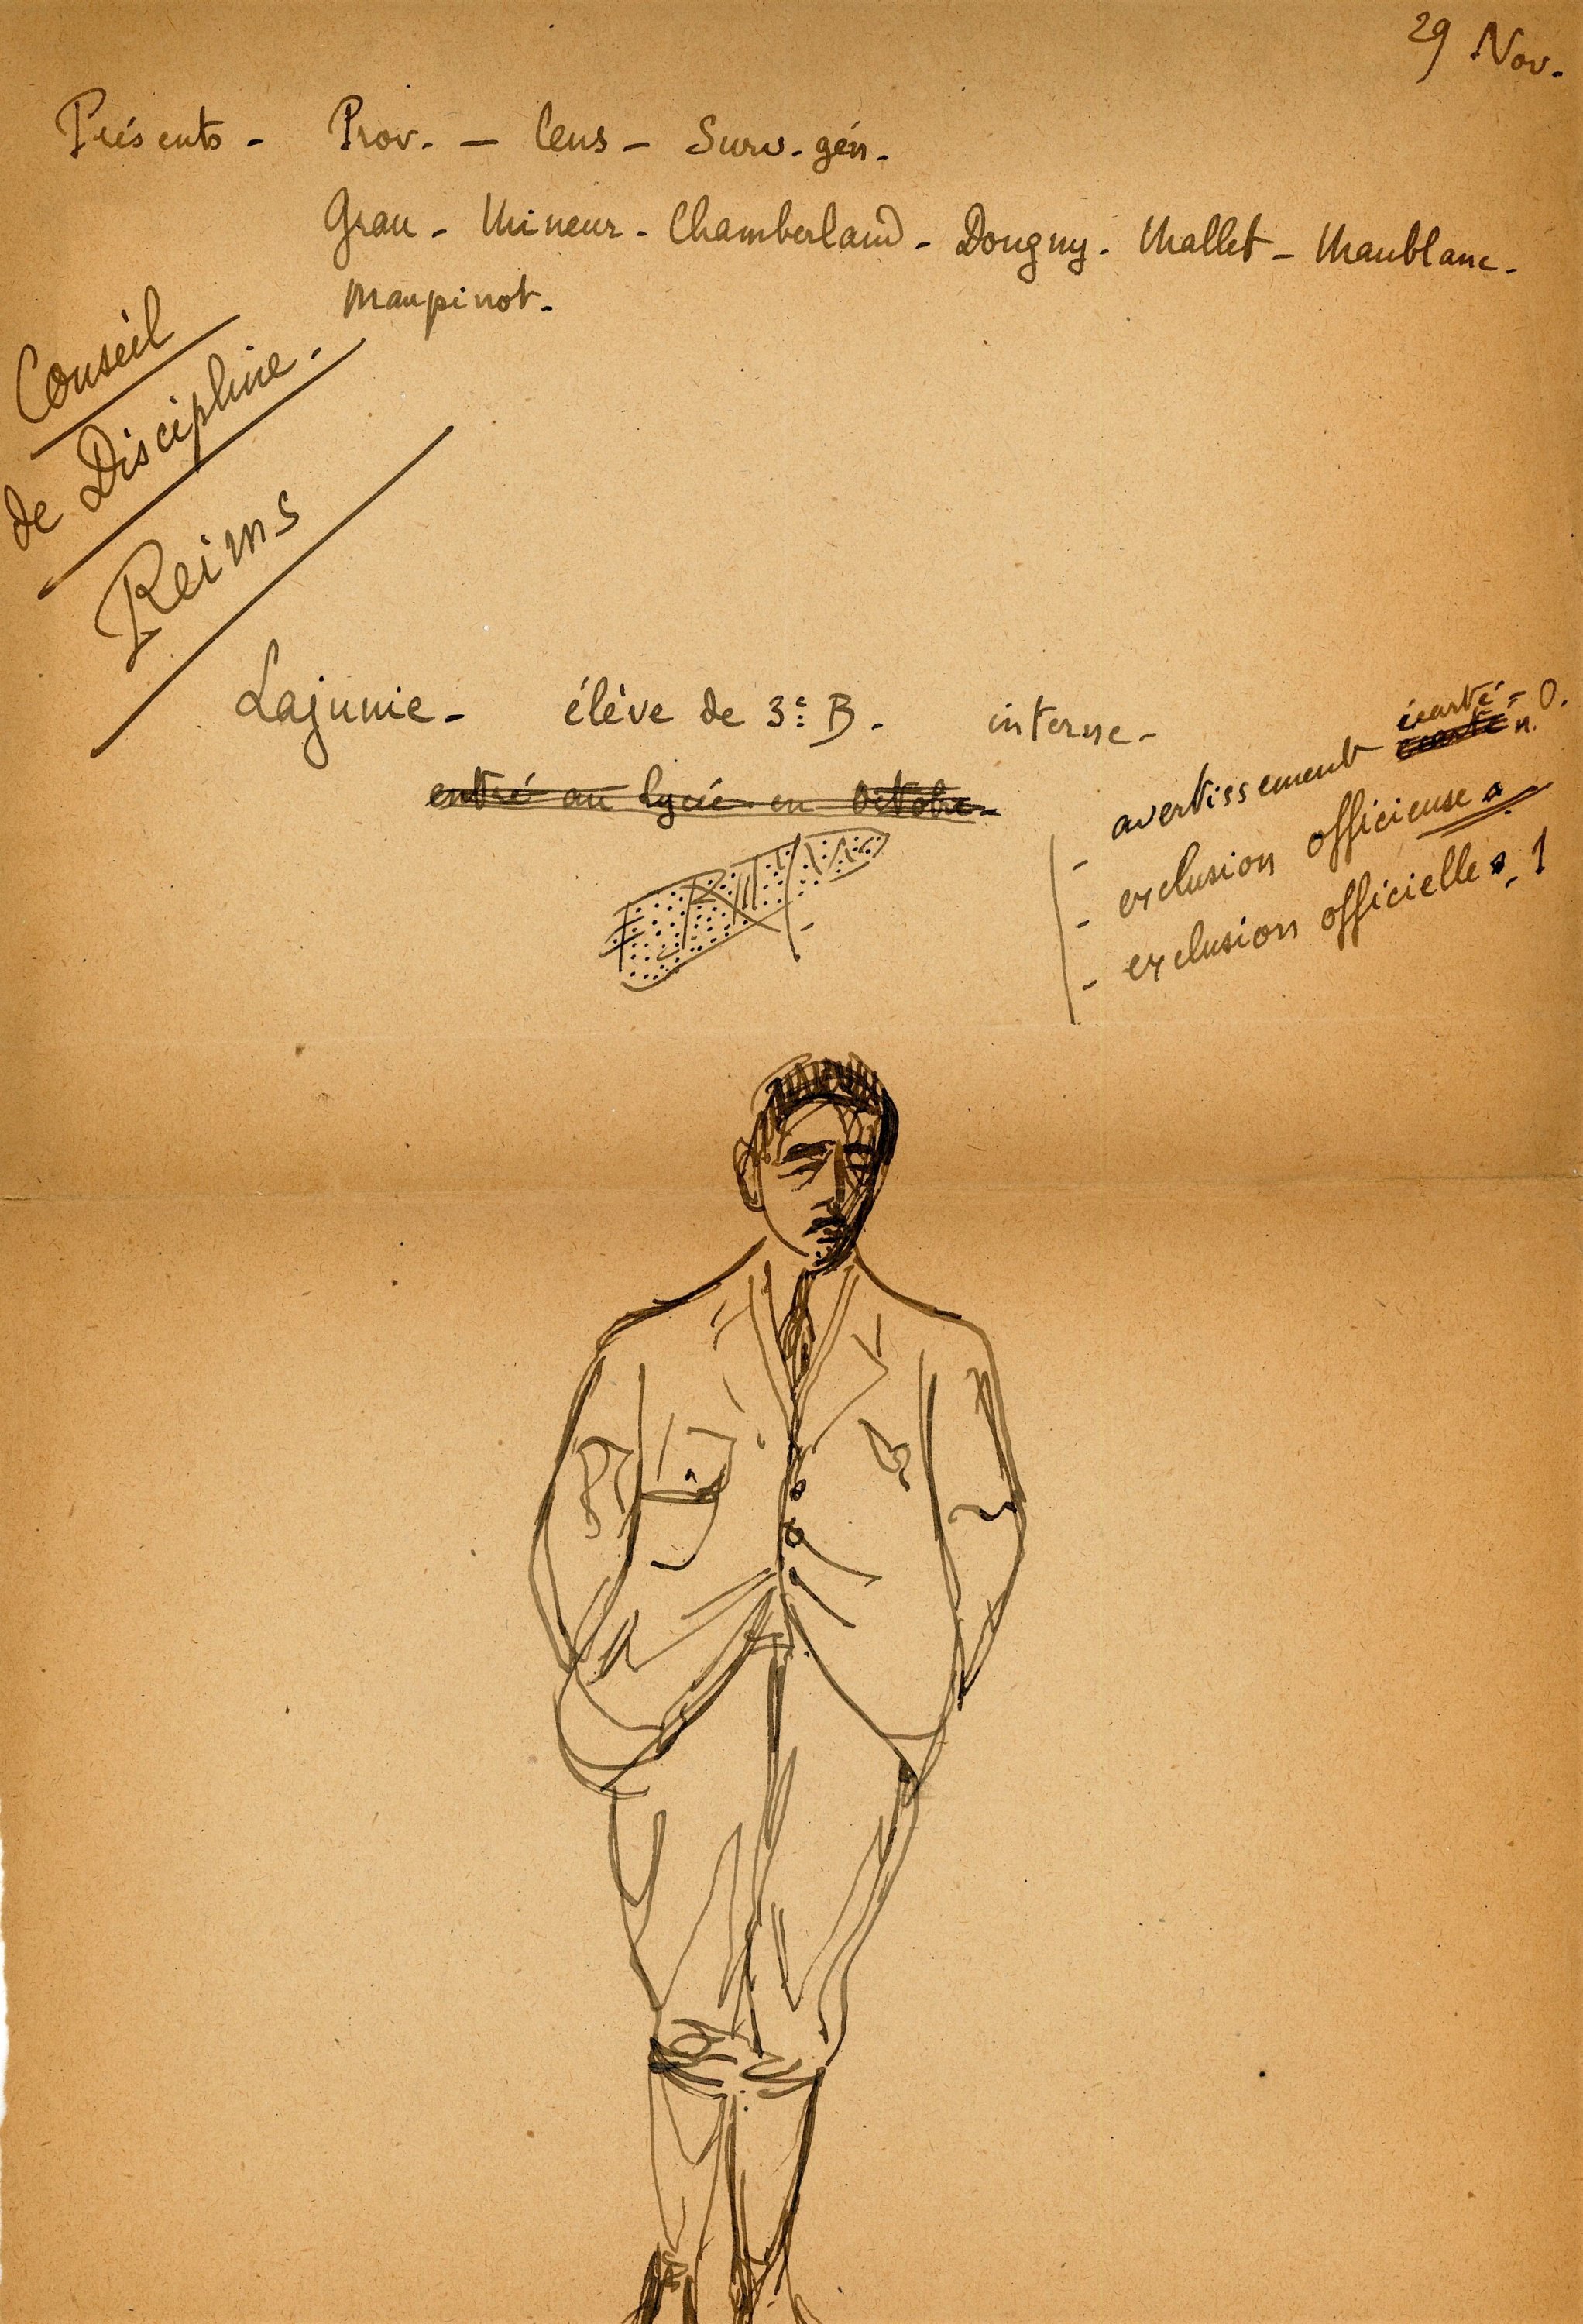 29 Nov.
Présents - Prov. - Cens - Surv. gén.
Grau - Mineur - Chamberland - Dougny - Mallet - Maublanc -
Maupinot.
Conseil
de Discipline.
Reims
Lajunie - élève de 3e B. interne -
entré au lycée en Octobre
- avertissement écarté = 0.
- exclusion officieuse
- exclusion officielle 1